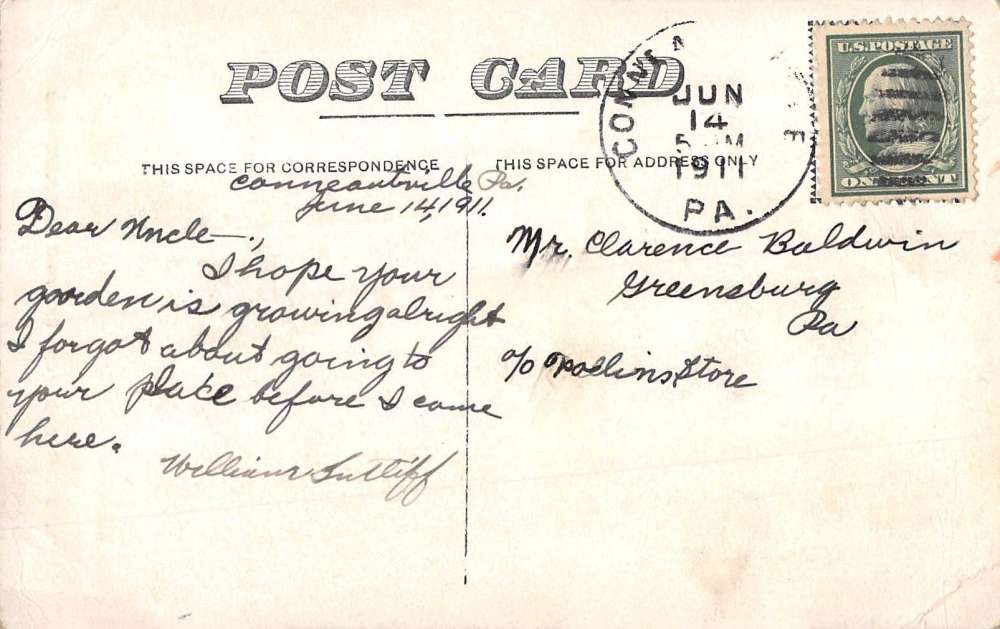 POST CARD
CONNEA E
JUN
14
M
1911
PA.
U.S. POSTAGE
ONE CENT
THIS SPACE FOR CORRESPONDENCE
THIS SPACE FOR ADDRESS ONLY
Conneautville Pa.
June 14, 1911.
Dear Uncle—,
I hope your
gaarden is growing alright
I forgot about going to
your place before I come
here.
William Sutliff
Mr. Clarence Baldwin
Greensburg
Pa
c/o Store